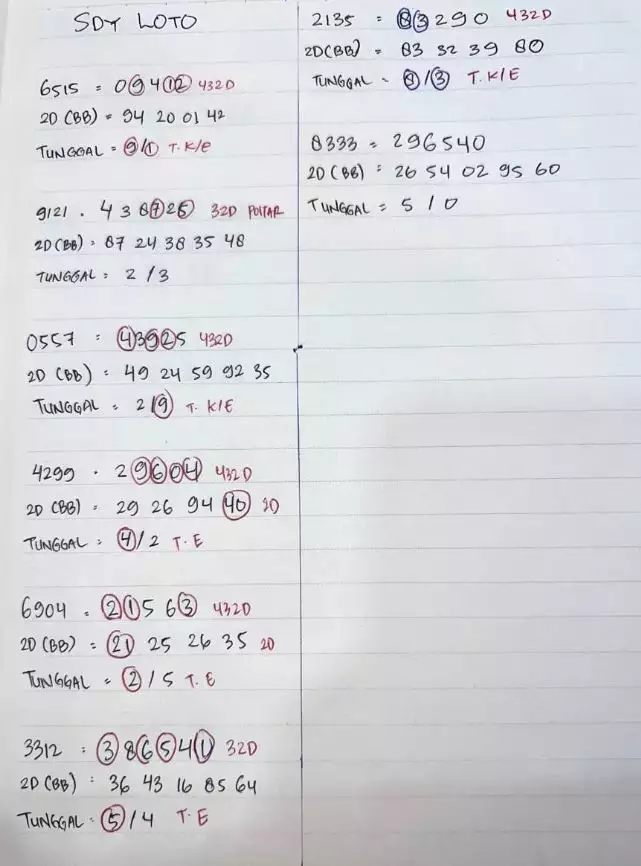 SDY LOTO
6515 = 09412 432D
2D (BB) = 94 20 01 42
TUNGGAL = 9/1 T. K/E
9121 . 438725 32D POLTAR
2D (BB) = 87 24 38 35 48
TUNGGAL = 2 / 3
0557 = 43925 432D
2D (BB) = 49 24 59 92 35
TUNGGAL = 2/9 T. K/E
4299 . 29604 432D
2D (BB) = 29 26 94 40 2D
TUNGGAL = 4/2 T. E
6904 = 21563 432D
2D (BB) = 21 25 26 35 2D
TUNGGAL = 2/5 T. E
3312 : 386541 32D
2D (BB) : 36 43 16 85 64
TUNGGAL = 5/4 T. E
2135 = 83290 432D
2D(BB) = 83 32 39 80
TUNGGAL = 8/3 T. K/E
8333 = 296540
2D (BB) = 26 54 02 95 60
TUNGGAL = 5 / 0